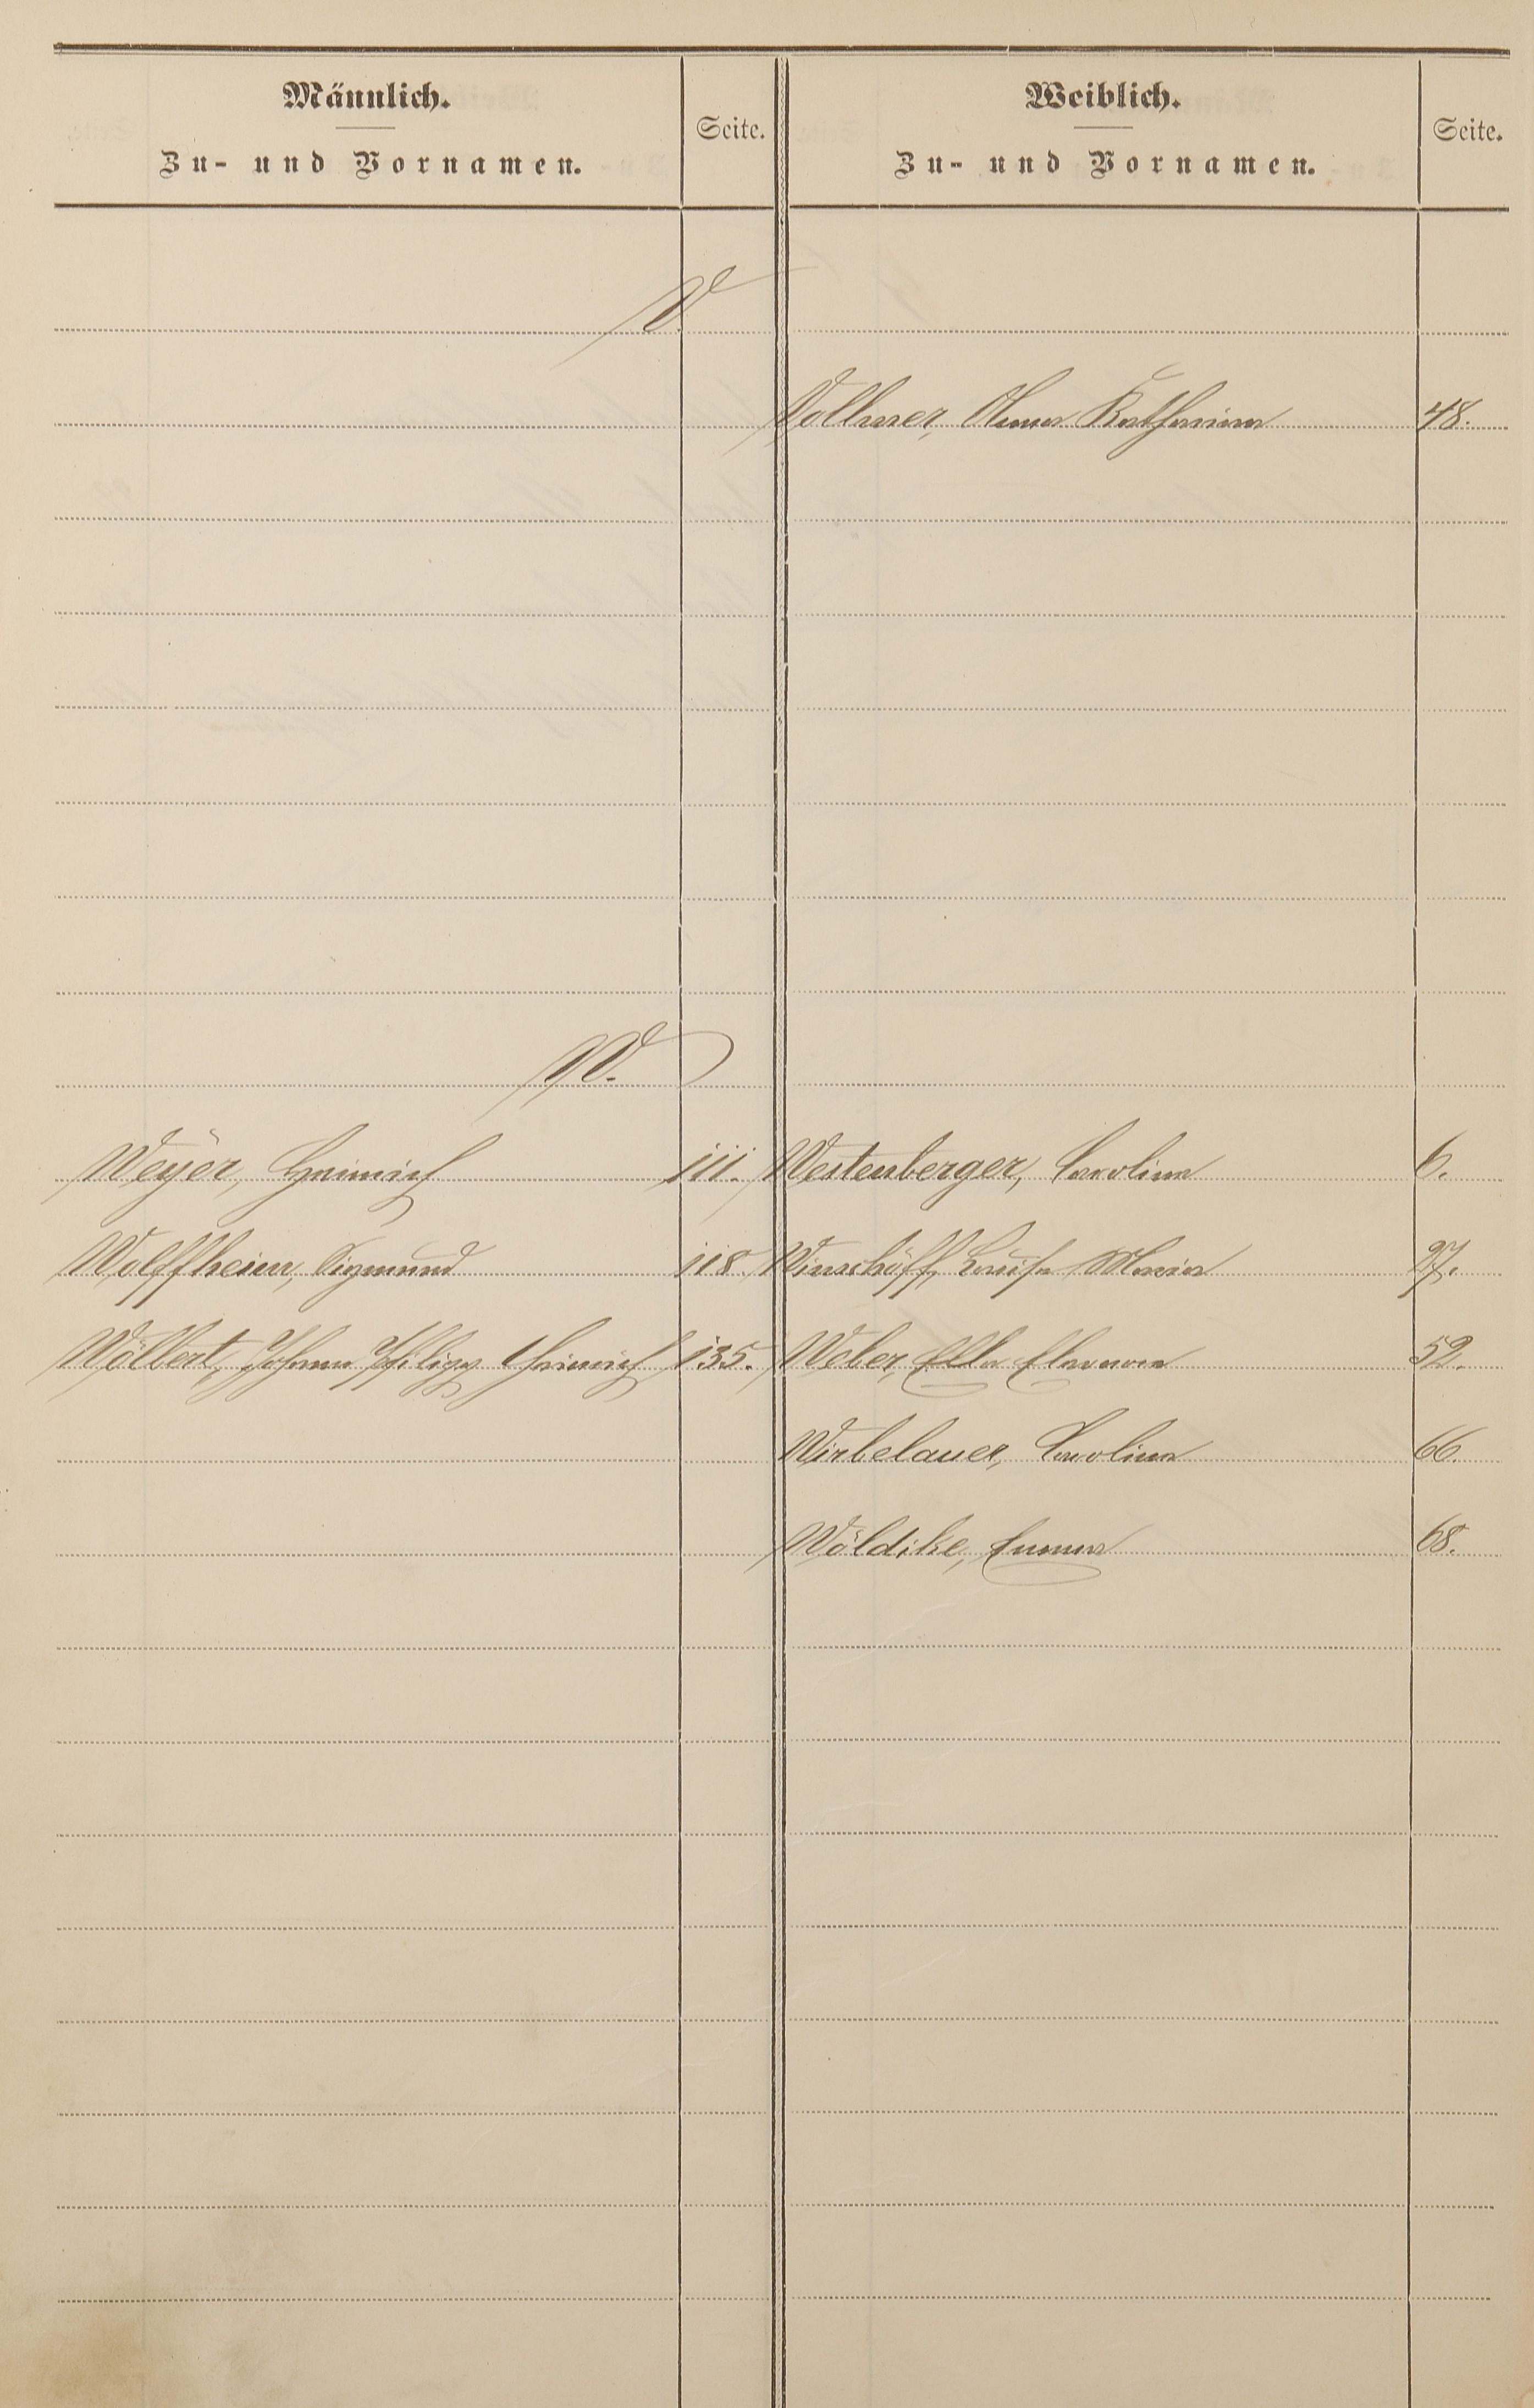 Männlich.
Zu- und Vornamen.
Seite.
Weiblich.
Zu- und Vornamen.
Seite.
V
Vollmer, Anna Katharina 48.
W.
Weyer, Heinrich 111. Westenberger, Carolina 6.
Wolffheim, Sigmund 118. Winschöff, Louise Maria 27.
Wölbert, Johann Philipp Heinrich 135. Weber, Ella Eleonora 52.
Wirbelauer, Carolina 66.
Wöldike, Emma 68.